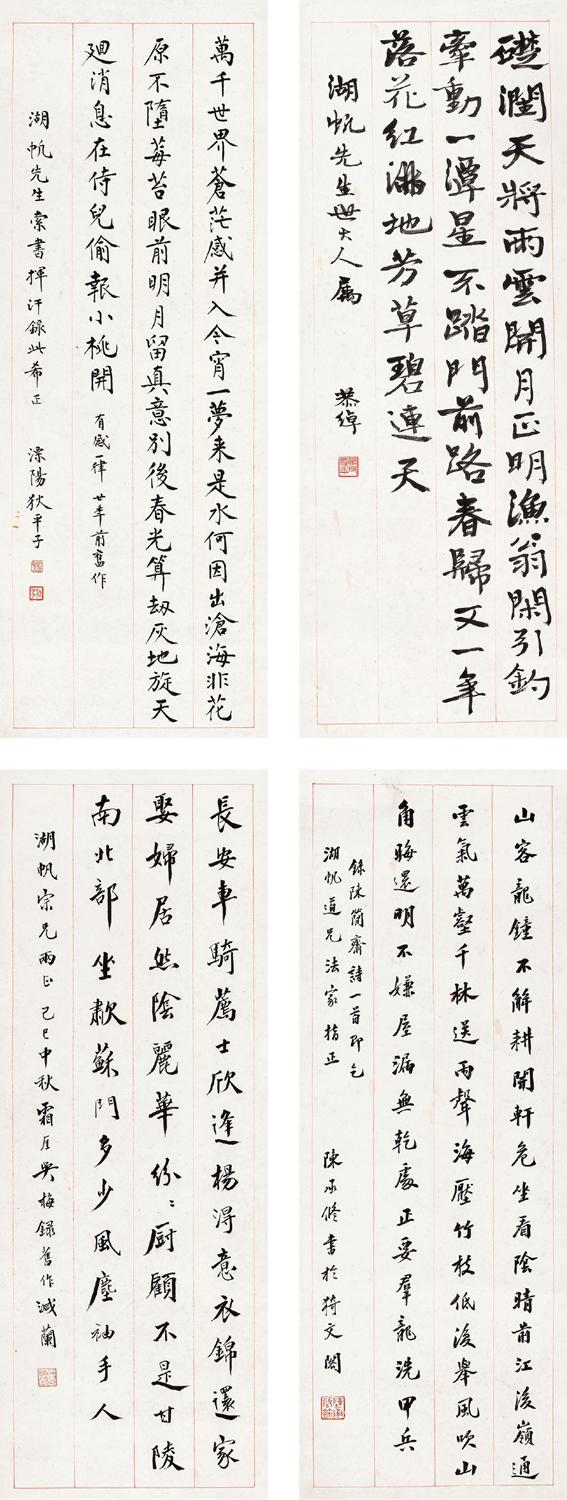 礎潤天將雨雲開月正明漁翁閑引釣
牽動一潭星不踏門前路春歸又一年
落花紅滿地芳草碧連天
湖帆先生世大人屬
恭綽
萬千世界蒼茫感并入今宵一夢来是水何因出滄海非花
原不墮莓苔眼前明月留真意別後春光算劫灰地旋天
迴消息在侍兒偷報小桃開
有感一律 廿年前舊作
湖帆先生索書揮汗錄此希正 溧陽狄平子
山客龍鍾不解耕開軒危坐看陰晴前江後嶺通
雲氣萬壑千林送雨聲海壓竹枝低復舉風吹山
角晦還明不嫌屋漏無乾處正要羣龍洗甲兵
錄陳簡齋詩一首即乞
湖帆道兄法家指正
陳承修書於猗文閣
長安車騎薦士欣逢楊得意衣錦還家
娶婦居然陰麗華紛〻厨顧不是甘陵
南北部坐歗蘇門多少風塵袖手人
湖帆宗兄兩正 己巳中秋霜厓吳梅錄舊作減蘭